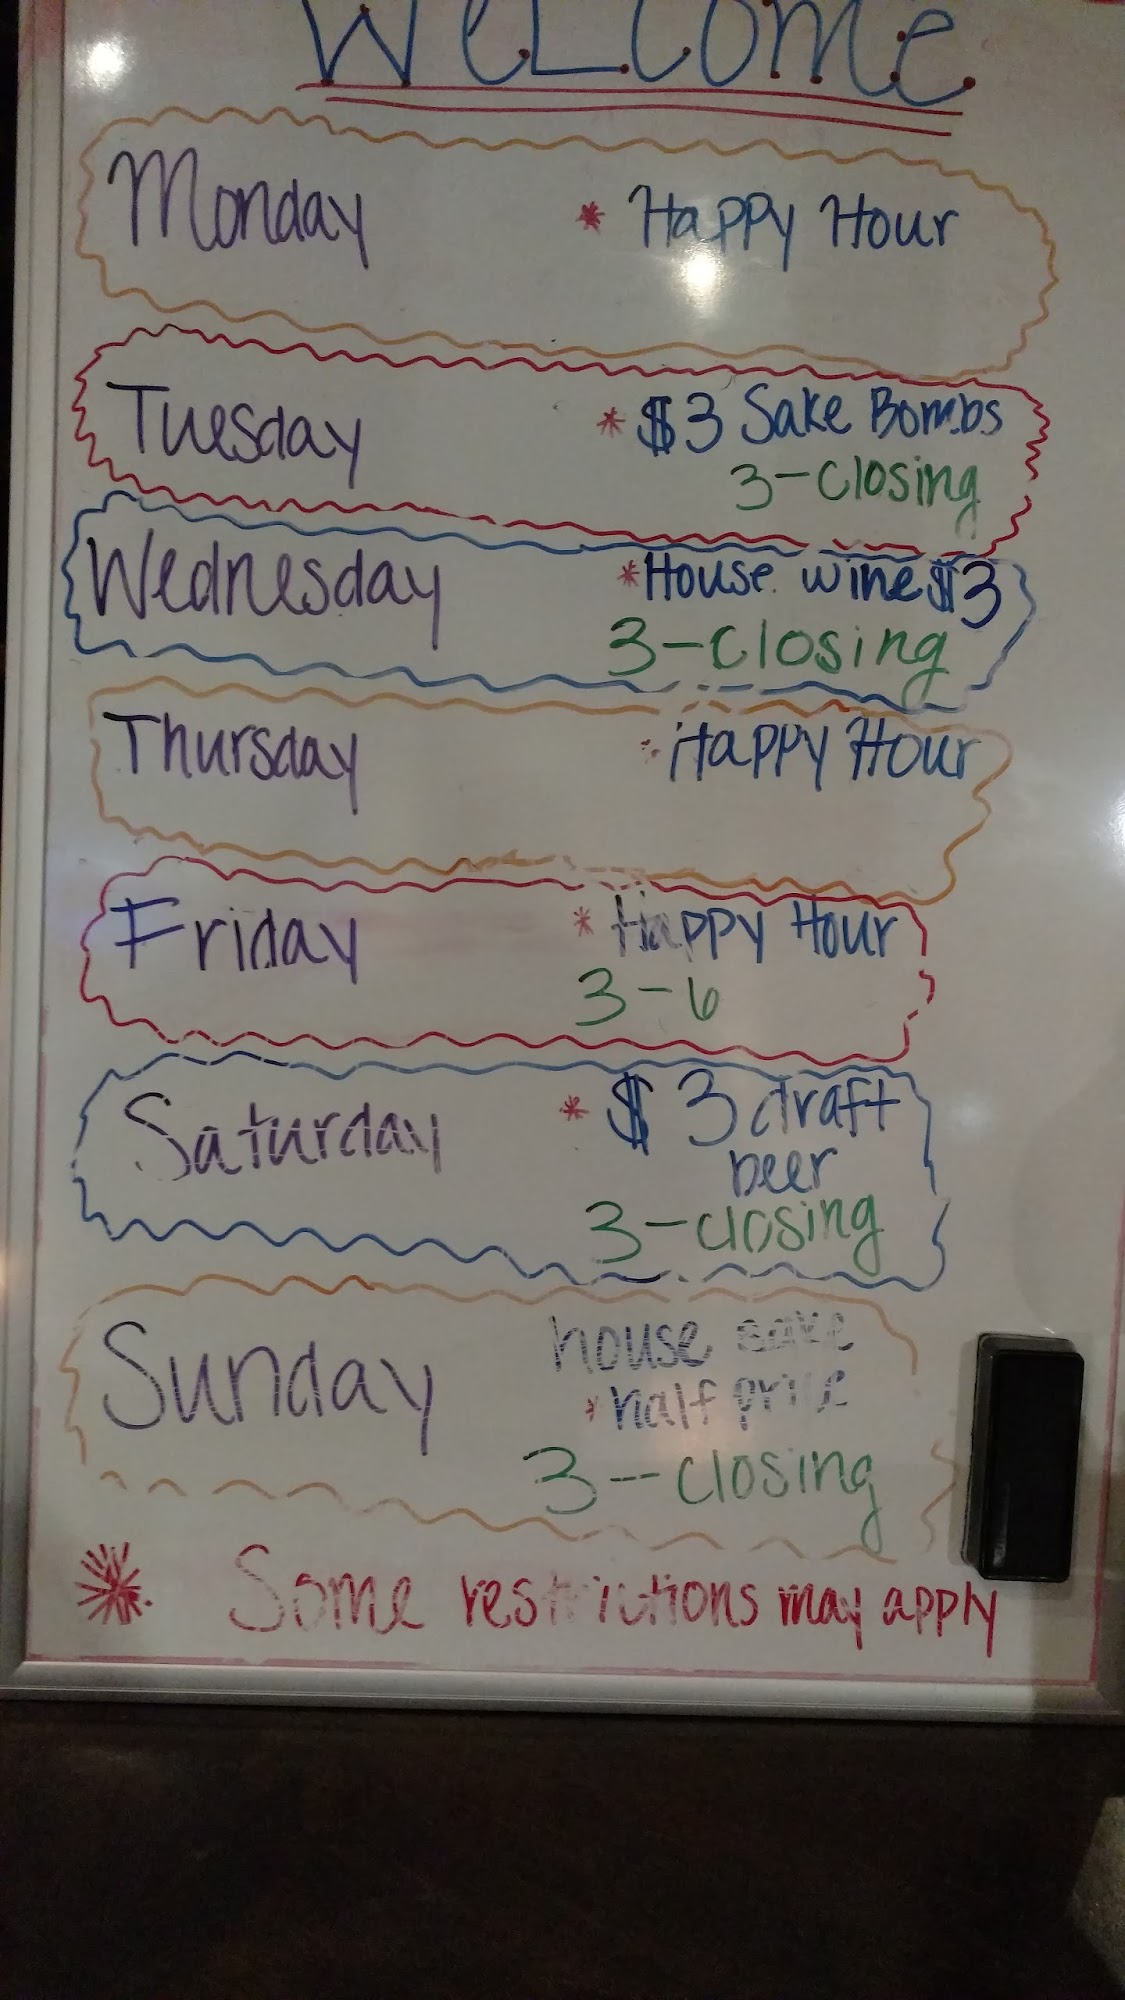 WELCOME
Monday * Happy Hour
Tuesday * $3 Sake Bombs
3-Closing
Wednesday * House wine $3
3-Closing
Thursday * Happy Hour
Friday * Happy Hour
3-6
Saturday * $3 draft
beer
3-closing
Sunday house sake
* half price
3--closing
* Some restrictions may apply